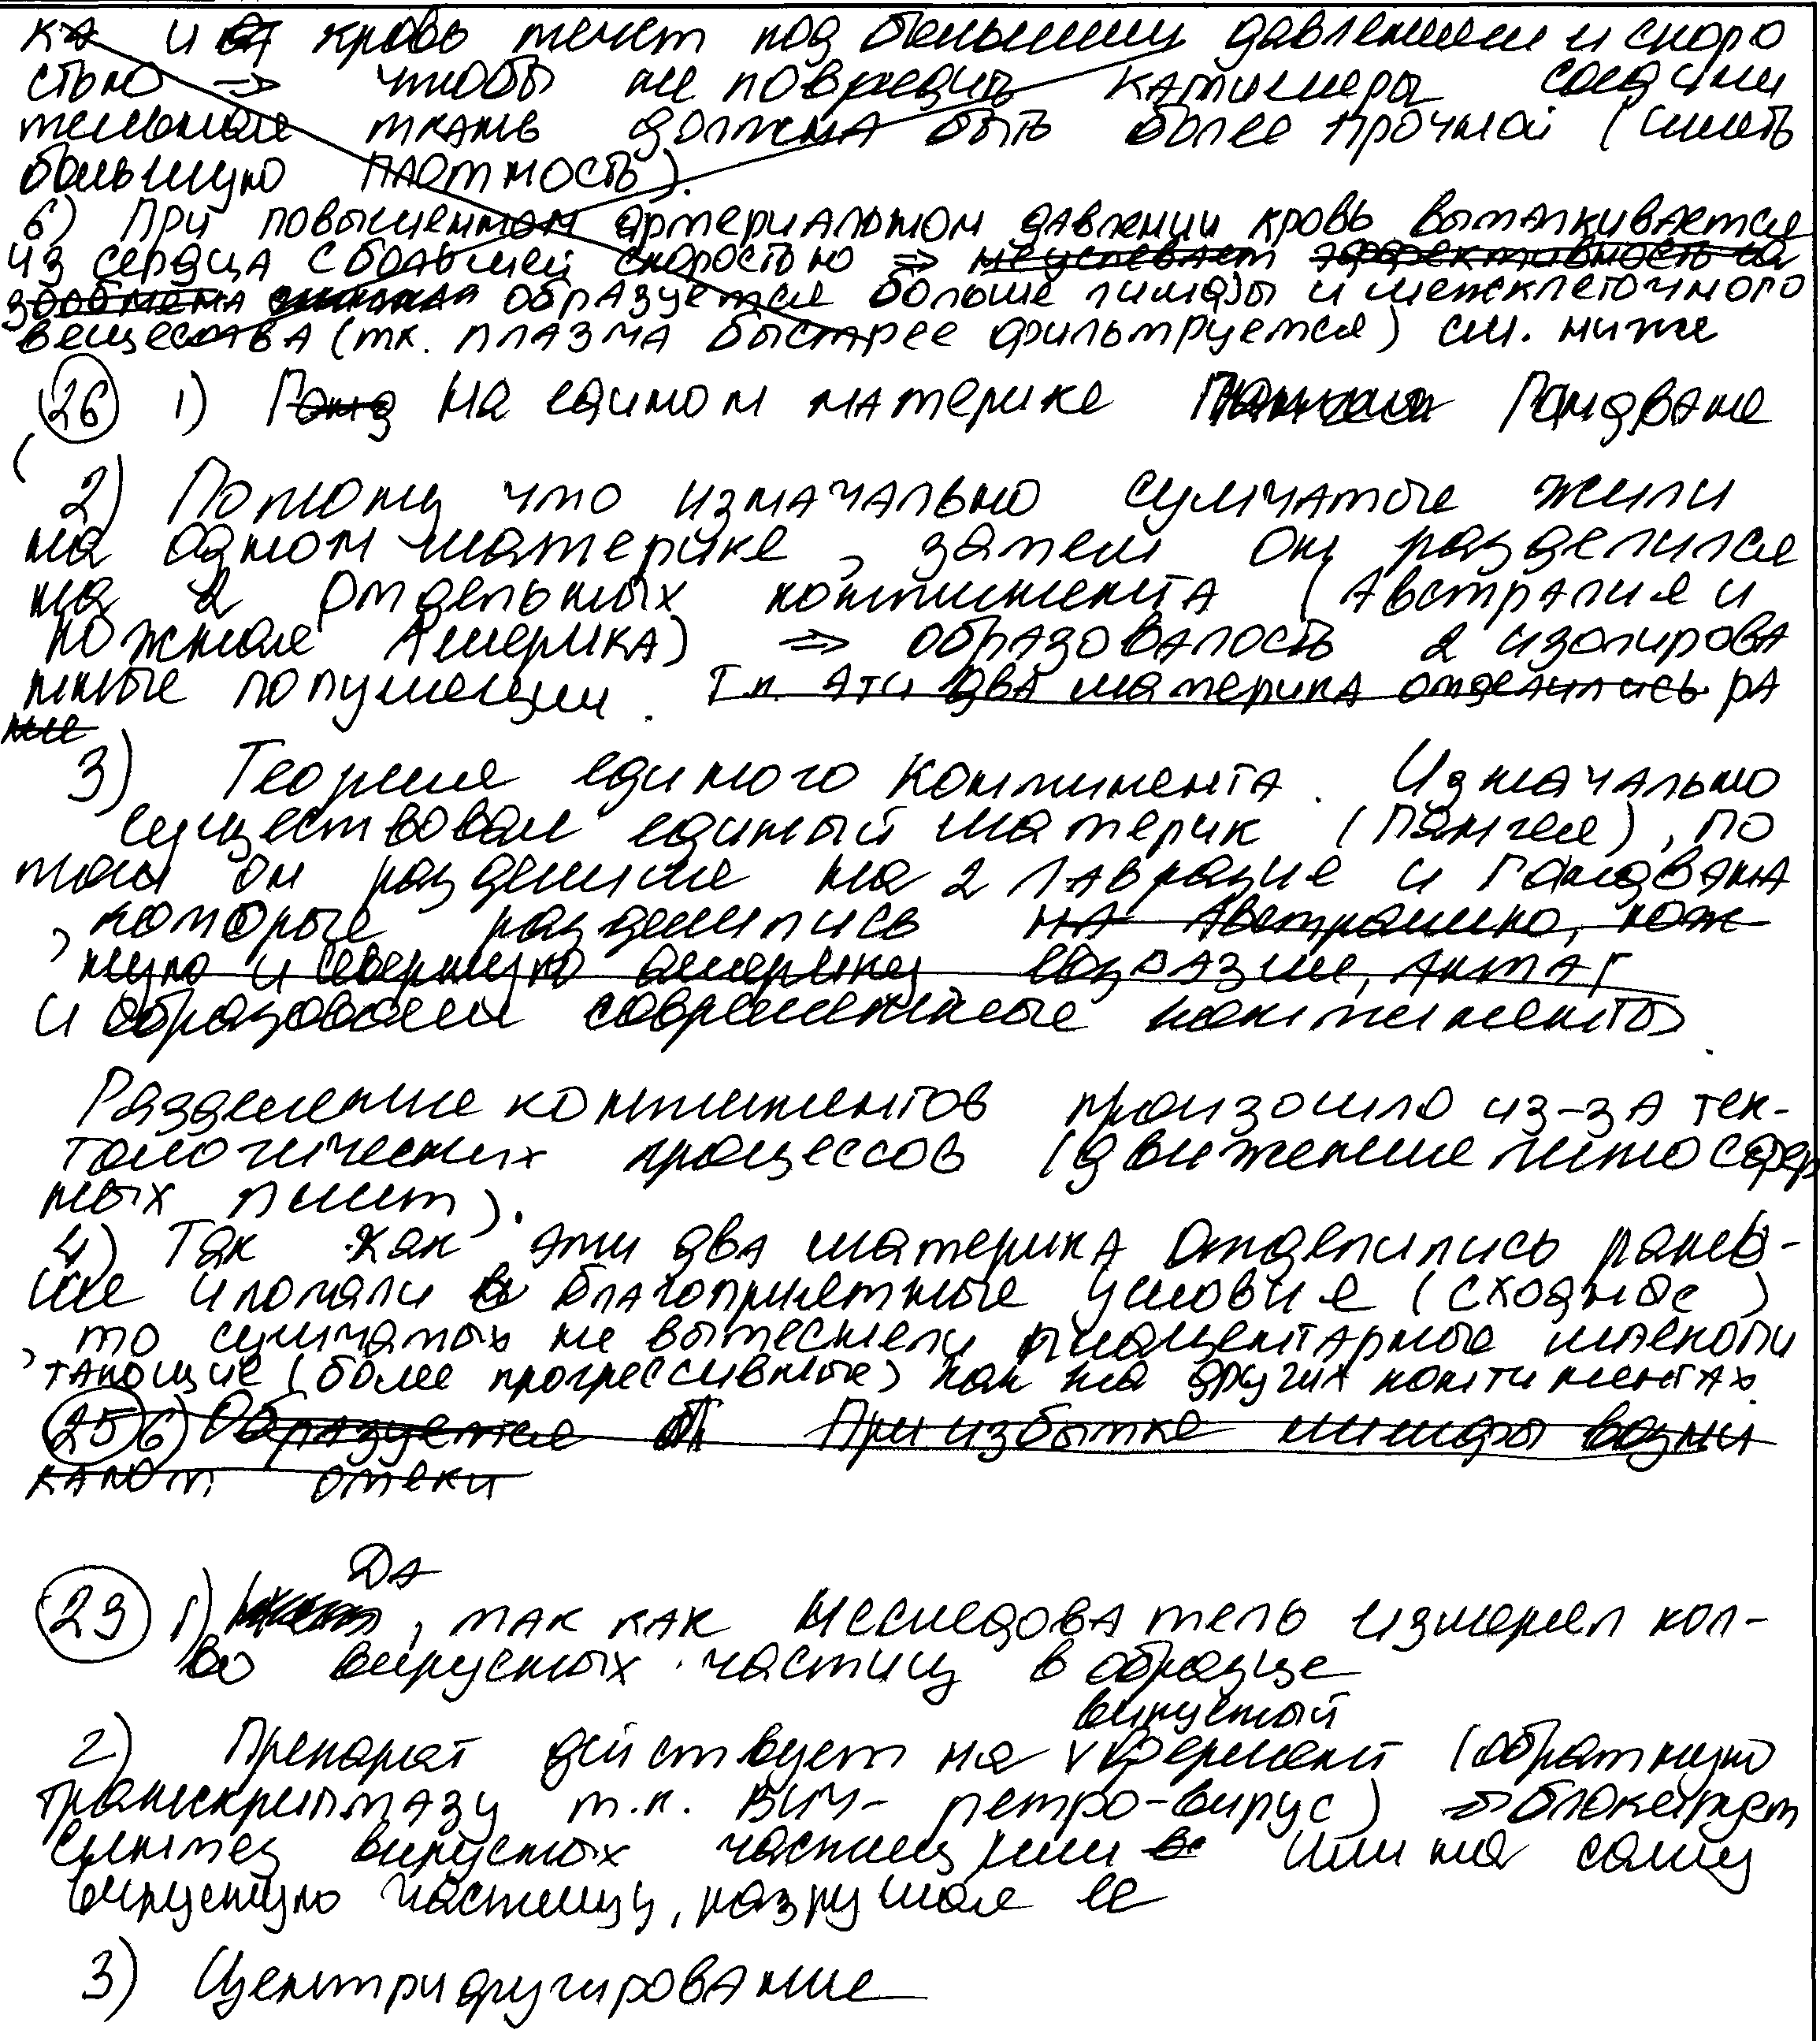 ка и кровь течет под большим давлением и скоро
стью => чтобы не повредить капилляры соедини
тельная ткань должна быть более прочной (иметь
большую плотность).
6) При повышенном артериальном давлении кровь выталкивается
из сердца с большей скоростью => не успевает эффективность га
зообмена образуется больше лимфы и межклеточного
вещества (тк. плазма быстрее фильтруется) см. ниже
26 1) Гонд На едином материке Гондване
2) Потому что изначально сумчатые жили
на одном материке, затем он разделился
на 2 отдельных континента (Австралия и
южная Америка) => образовалость 2 изолирова
нные популяции. Т.к. эти два материка отделились ра
нее
3) Теория единого континента. Изначально
существовал единый материк (Пангея), по
том он разделился на 2 Лавразия и Гондвана
, которые разделились на Австралию, юж
ную и северную америку евразию, Антар
и образовали современные континенты.
Разделение континентов произошло из-за тек-
тонических процессов (движение литосфер
ных плит).
4) Так как эти два материка отделились рань-
ше и попали в благоприятные условия (сходные)
, то сумчатых не вытеснели плацентарные млекопи
тающие (более прогрессивные) как на других континентах.
25 6) Образуется При избытке лимфы возни
кают отеки
Да
29 1) , так как исследователь измерял кол-
во вирусных частиц в образце
вирусный
2) Препарат действует на v фермент (обратную
транскриптазу т.к. ВИЧ- ретро-вирус) => блокирует
синтез вирусных частиц или на саму
вирусную частицу, разрушая ее
3) Центрифугирование